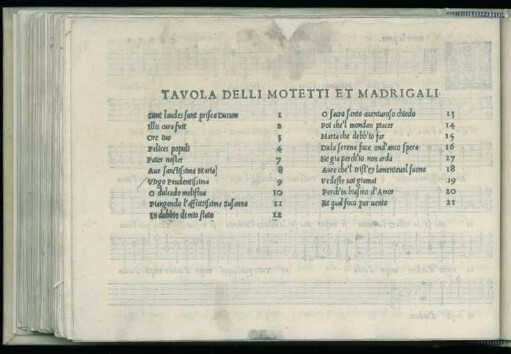 TAVOLA DELLI MOTETTI ET MADRIGALI
Sunt laudes sunt prisca Ducum 1
Illa cura fuit 2
Ore tuo 3
Felices populi 4
Pater noster 7
Aue sanctissima Maria 8
Virgo Prudentissima 9
O dulcedo meliflua 10
Piangendo l'afflittissima Susanna 11
In dubbio di mio stato 12
O sacro santo auenturoso chiodo 13
Poi che'l mondan piacer 14
Marta che debb'io far 15
Dala serena face ond'amor spera 16
Ne gia perch'io non arda 17
Aure che'l trist'ey lamenteuol suono 18
Vedeste uoi giamai 19
Perch'io biasmo d'Amor 20
Ne qual foco per uento 21